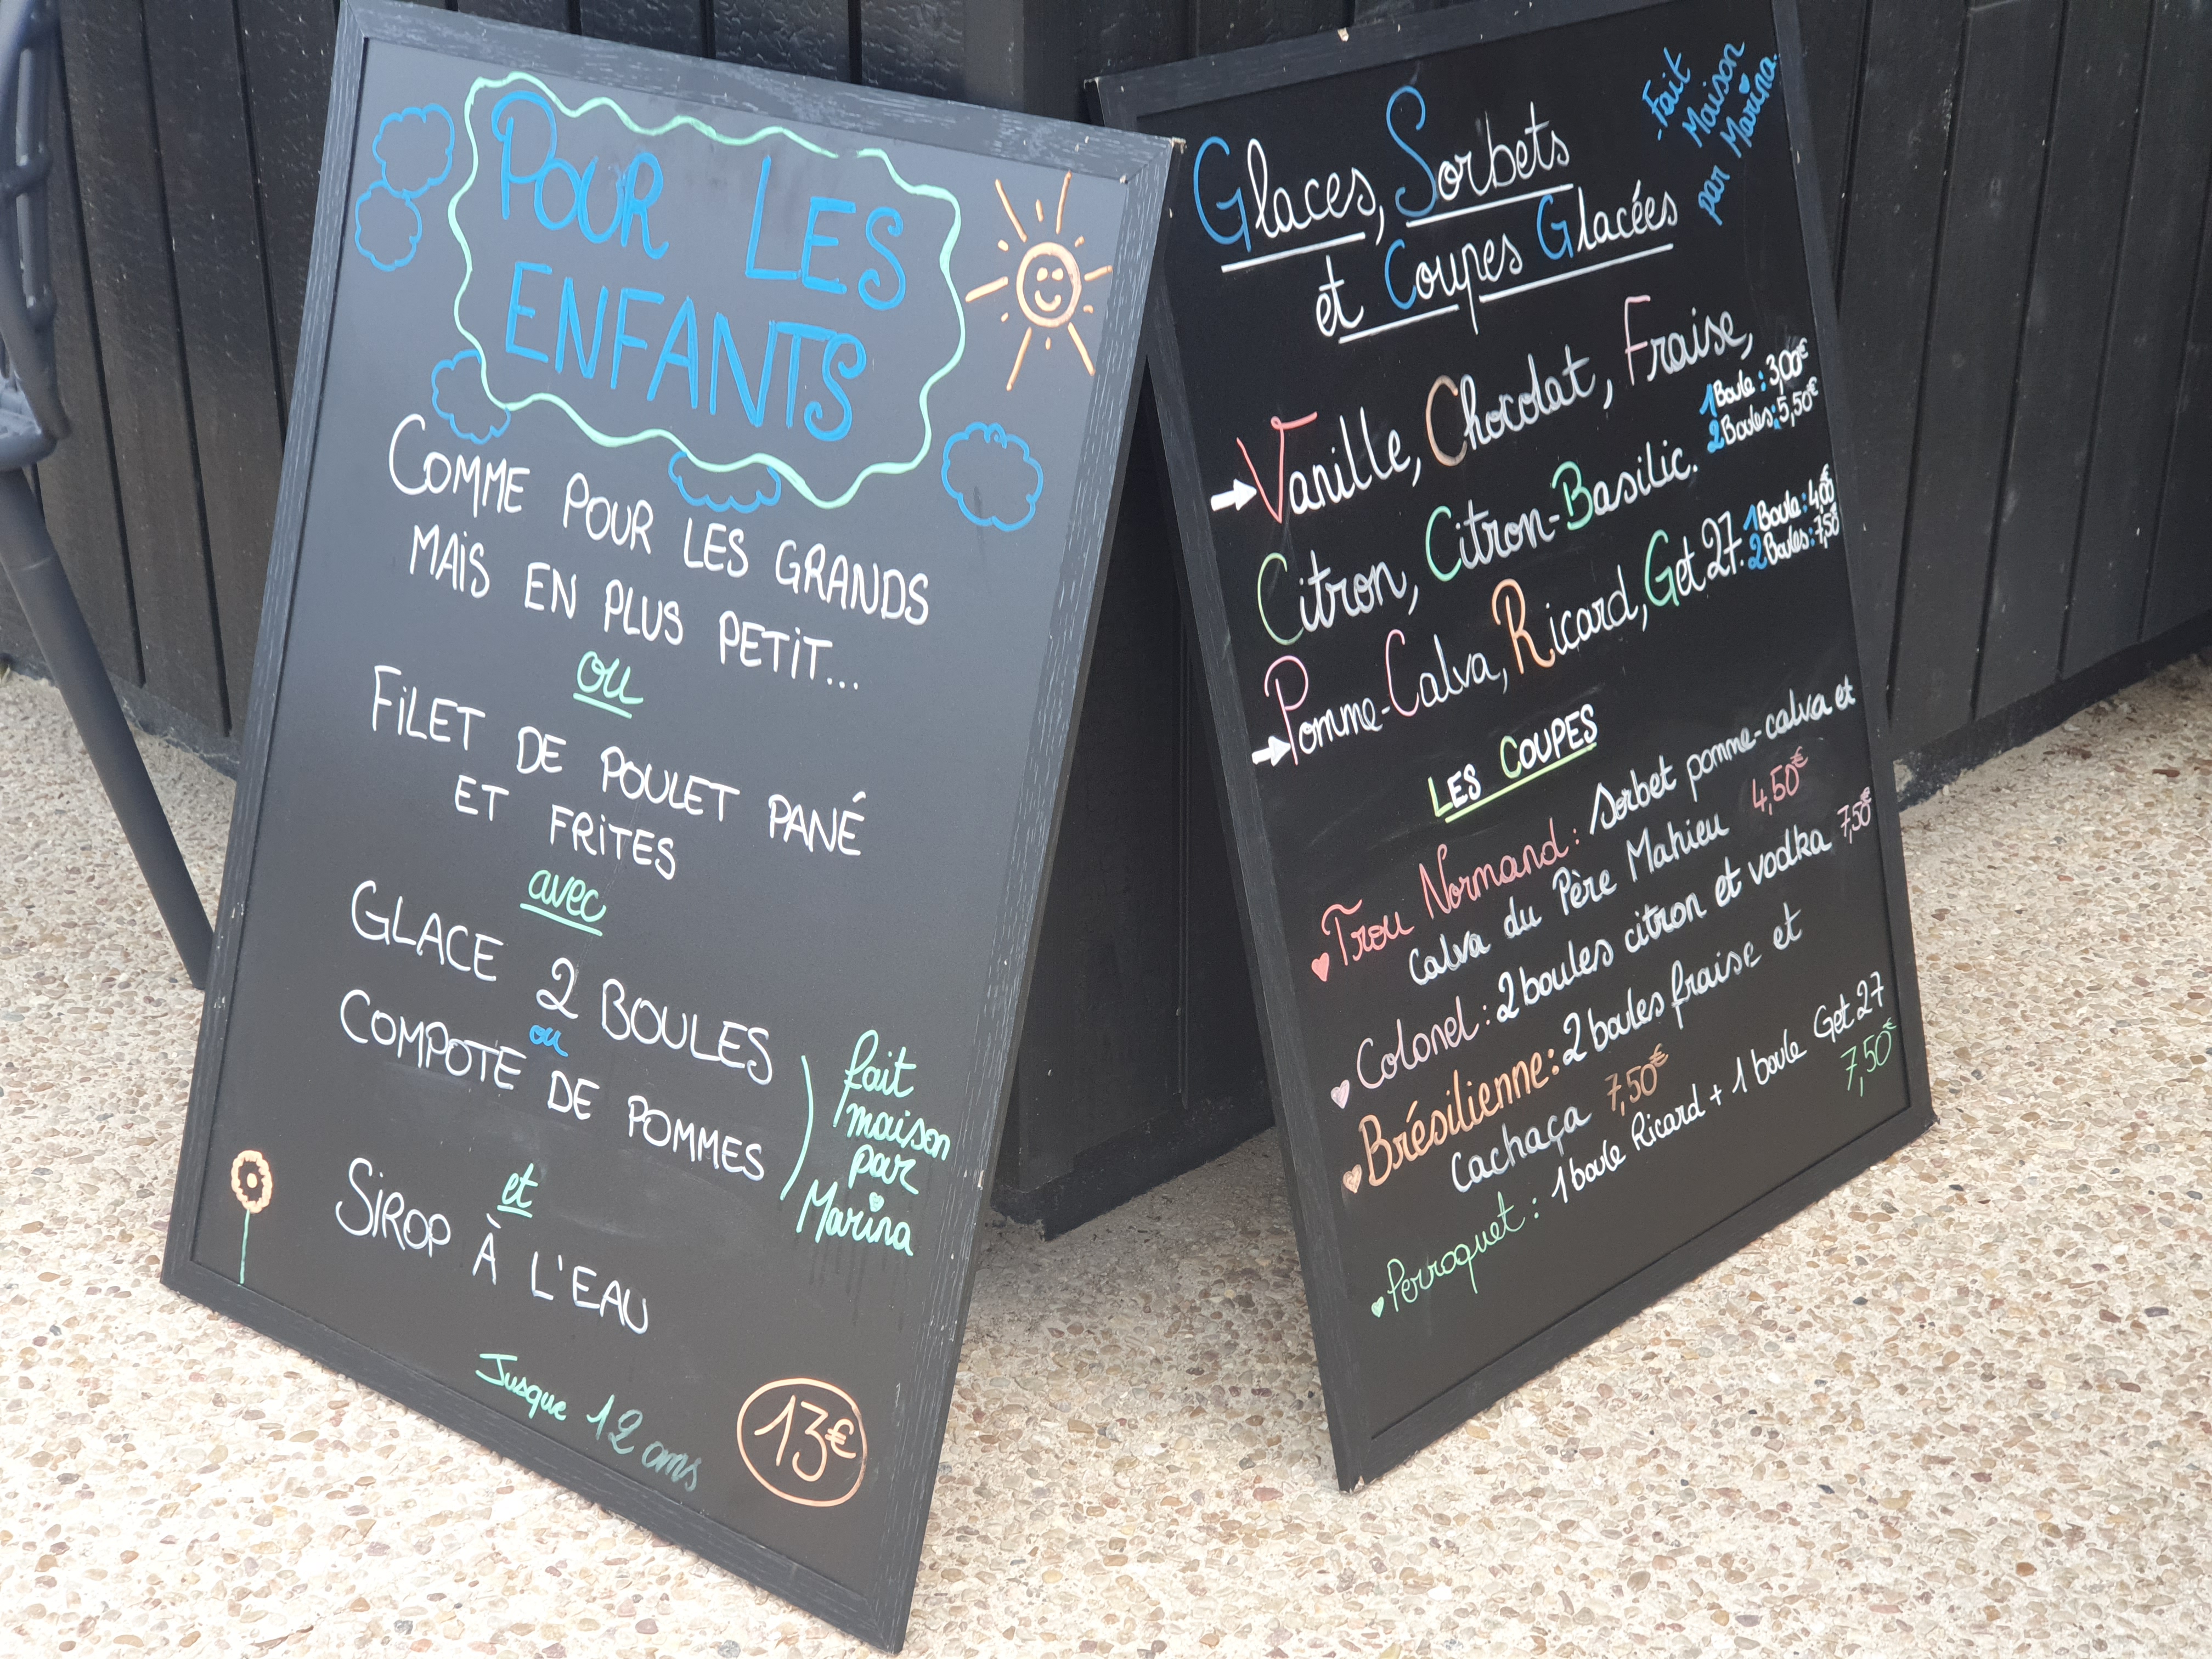 POUR LES
ENFANTS
COMME POUR LES GRANDS
MAIS EN PLUS PETIT...
ou
FILET DE POULET PANÉ
ET FRITES
avec
GLACE 2 BOULES
ou
COMPOTE DE POMMES
fait
maison
par
Marina
et
SIROP À L'EAU
Jusque 12 ans
13€
Glaces, Sorbets
et Coupes Glacées
-Fait
Maison
par Marina.
Vanille, Chocolat, Fraise,
Citron, Citron-Basilic.
1 Boule : 3,00€
2 Boules : 5,50€
Pomme-Calva, Ricard, Get 27.
1 Boule : 4,00€
2 Boules : 7,50
LES COUPES
Trou Normand : Sorbet pomme-calva et
Calva du Père Mahieu 4,50€
Colonel : 2 boules citron et vodka 7,50€
Brésilienne : 2 boules fraise et
Cachaça 7,50€
Perroquet : 1 boule Ricard + 1 boule Get 27
7,50€